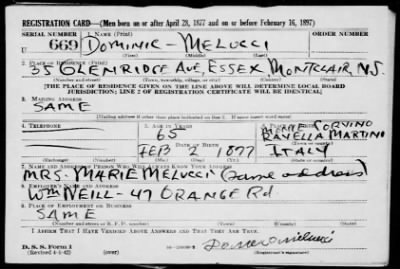 REGISTRATION CARD—(Men born on or after April 28, 1877 and on or before February 16, 1897)
SERIAL NUMBER 1. NAME (Print) ORDER NUMBER
U 669 DOMINIC - MELUCCI
(First) (Middle) (Last)
2. PLACE OF RESIDENCE (Print)
35 GLENRIDGE AVE ESSEX MONTCLAIR, N.J.
(Number and street) (Town, township, village, or city) (County) (State)
[THE PLACE OF RESIDENCE GIVEN ON THE LINE ABOVE WILL DETERMINE LOCAL BOARD
JURISDICTION; LINE 2 OF REGISTRATION CERTIFICATE WILL BE IDENTICAL]
3. MAILING ADDRESS
SAME
[Mailing address if other than place indicated on line 2. If same insert word same]
4. TELEPHONE 5. AGE IN YEARS
65 MARTINO
DATE OF BIRTH
FEB 2 1877 ITALY
(Exchange) (Number) (Mo.) (Day) (Yr.)
7. NAME AND ADDRESS OF PERSON WHO WILL ALWAYS KNOW YOUR ADDRESS
MRS. MARIE MELUCCI (Same address)
8. EMPLOYER'S NAME AND ADDRESS
WM WEILL - 47 ORANGE Rd
9. PLACE OF EMPLOYMENT OR BUSINESS
SAME
(Number and street or R. F. D. number) (Town) (County) (State)
I AFFIRM THAT I HAVE VERIFIED ABOVE ANSWERS AND THAT THEY ARE TRUE.
D. S. S. Form 1
(Revised 4-1-42) (over) (Registrant's signature)